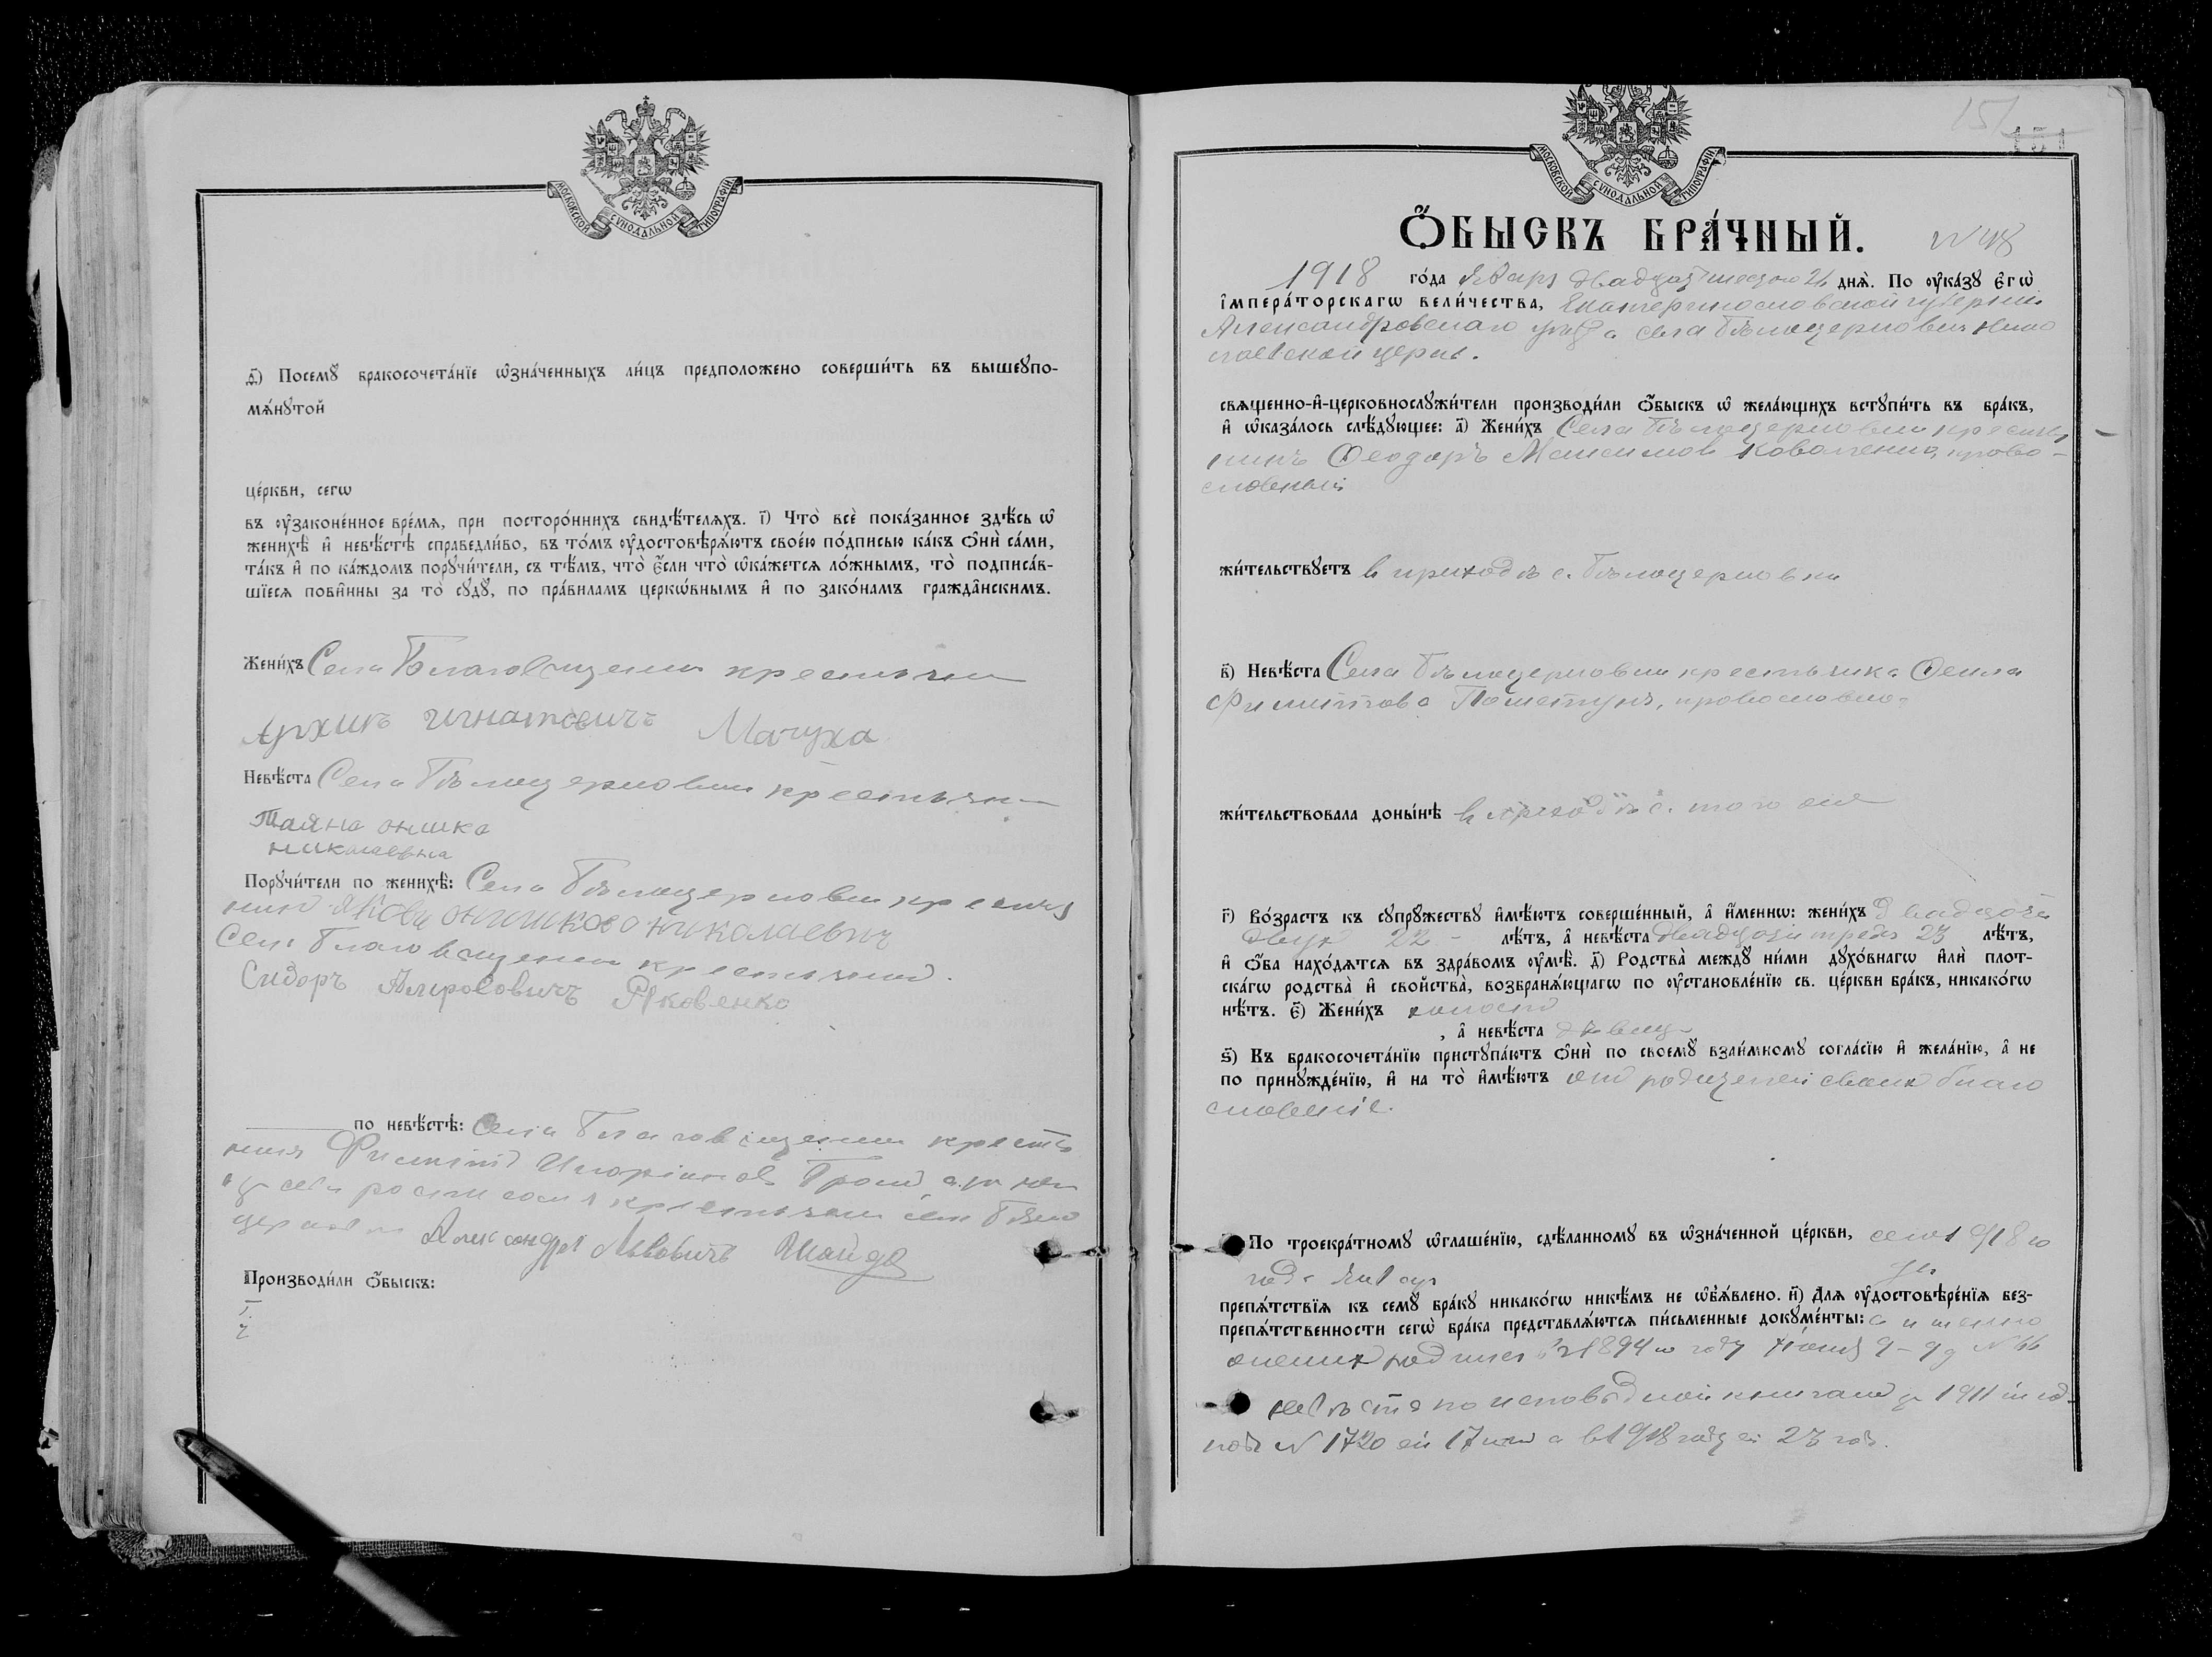 МОСКОВСКОЙ СѴНОДАЛЬНОЙ ТИПОГРАФІИ
д҃) Посемꙋ бракосочета́нїе ѡ҆зна́ченныхъ ли́цъ предположено соверши́ть въ вышеꙋпо-
мѧ́нꙋтой
це́ркви, сегѡ
въ ᲂу҆законе́нное вре́мѧ, при посторо́ннихъ свидѣ́телѧхъ. і҃) Что̀ всѐ пока́занное здѣ́сь ѡ҆
женихѣ̀ и҆ невѣ́стѣ справедли́во, въ то́мъ ᲂу҆достовѣрѧ́ютъ свое́ю по́дписью ка́къ ѻ҆нѝ са́ми,
та́къ и҆ по ка́ждомъ порꙋчи́тели, съ тѣ́мъ, что̀ є҆́сли что̀ ѡ҆ка́жетсѧ ло́жнымъ, то̀ подписа́в-
шїесѧ пови́нны за то̀ сꙋдꙋ̀, по пра́виламъ церкѡ́внымъ и҆ по зако́намъ гражда̂нскимъ.
Жени́хъ Села Благовещенки крестьянин
Архипъ Игнатовичъ Мачуха
Невѣ́ста Села Бѣлоцерковки крестьянка
Оничка
николаевна
Порꙋчи́тели по женихѣ̀: Села Бѣлоцерковки крестья
нин Яковъ николаевич
Села Благовещенки крестьянин.
Сидоръ Яковенко
по невѣ́стѣ: Села Благовещенки кресть
янин Филипп
крестьянин села Бѣло
церковки Александръ Львовичъ Шайда
Производи́ли ѻ҆́быскъ:
151
151
МОСКОВСКОЙ СѴНОДАЛЬНОЙ ТИПОГРАФІИ
Ѻ҆́БЫСКЪ БРА́ЧНЫЙ. N 48
1918 го́да Января двадцать шестого 26 днѧ̀. По ᲂу҆ка́зꙋ Є҆гѡ̀
і҆мпера́торскагѡ вели́чества, Екатеринославской губернии
Александровскаго уезда села Бѣлоцерковки Нико
лаевской церкви.
свѧщенно-и҆-церковнослꙋжи́тели производи́ли ѻ҆́быскъ ѡ҆ жела́ющихъ встꙋпи́ть въ бра́къ,
и҆ ѡ҆каза́лось слѣ́дꙋющее: а҃) Жени́хъ Села Бѣлоцерковки крестья
нинъ Ѳеодоръ Максимов Коваленко, право-
славный
жи́тельствꙋетъ в приходѣ с. Бѣлоцерковки
в҃) Невѣ́ста Села Бѣлоцерковки крестьянка Ѳекла
Филиппова православно
жи́тельствовала доны́нѣ в приходѣ с. того же
г҃) Во́зрастъ къ сꙋпрꙋжествꙋ и҆мѣ́ютъ соверше́нный, а҆ и҆́менно: жени́хъ двадцати
двух 22 – лѣ́тъ, а҆ невѣ́ста двадцати трех 23 лѣ́тъ,
и҆ ѻ҆́ба нахо́дѧтсѧ въ здра́вомъ ᲂу҆мѣ̀. д҃) Родства̀ междꙋ ни́ми дꙋхо́внагѡ и҆лѝ плот-
ска́гѡ родства̀ и҆ свойства̀, возбранѧ́ющагѡ по ᲂу҆становле́нїю св. це́ркви бра́къ, никако́гѡ
нѣ́тъ. є҃) Жени́хъ холост
, а҆ невѣ́ста дѣвица
ѕ҃) Къ бракосочета́нїю пристꙋпа́ютъ ѻ҆нѝ по своемꙋ̀ взаи́мномꙋ согла́сїю и҆ жела́нїю, а҆ не
по принꙋжде́нїю, и҆ на то̀ и҆мѣ́ютъ от родителей своих благо
словение.
По троекра́тномꙋ ѡ҆глаше́нїю, сдѣ́ланномꙋ въ ѡ҆зна́ченной це́ркви, сего 1918 го
года Января
препѧ́тствїѧ къ семꙋ̀ бра́кꙋ никако́гѡ никѣ́мъ не ѡ҆б̾ѧ́влено. и҃) Длѧ ᲂу҆достовѣре́нїѧ без-
препѧ́тственности сегѡ̀ бра́ка представлѧ́ютсѧ пи́сьменные докꙋме́нты: а именно
жених родился 1894 го году 9 – 9 д N 66
невѣста по исповѣдной книгам за 1911 й год
под N 1720 ей 17 лет а в 1918 году ей 23 год.